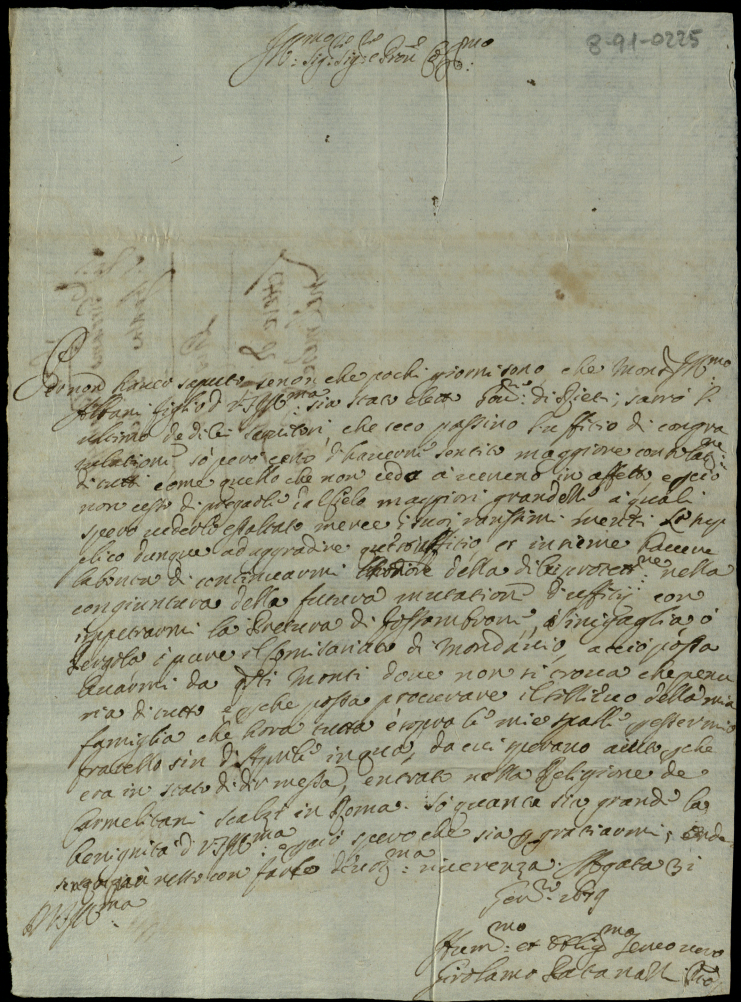 8-91-0225
Ill:mo Sig:re Sig:re e Pron Col:mo
Io non havea saputo senon che pochi giorni sono che Mons Ill:mo
Albani figlio d V.S. Ill:ma sia stato eletto di Rieti; sarò l'
ultimo de di lei servitori, che seco passino l'ufficio di congra
tulationi, sò però certo d'haverne sentito maggiore
di tutti come quello che non cedo à veruno in affetto e però
non cesso di pregarli dal Cielo maggiori grandezze a quali
spero vederlo esaltato mercè i suoi rarissimi meriti La sup
plico dunque ad aggradire ufficio et insieme havere
la bontà di continuarmi della di lei protett:ne nella
congiuntura della futura mutatione d'uffitij con
impetrarmi la Pretura di Fossombrone, Sinigaglia ò
Pergola ò pure il Comissariato di Mondavio, acciò possa
levarmi da q:sti Monti dove non si trova che penu
ria di tutto e che possa procurare il sollievo della mia
famiglia che hora tutta è sopra le mie spalle p essermio
fratello sin d' in quà, da cui speravo aiuto p che
era in stato di dir messa, entrato nella Religione de
Carmelitani scalzi in Roma. Sò quanta sia grande la
benignità d V.S. Ill:ma e però spero che sia p gratiarmi, onde
senza più resto con farle riverenza. S. Agata 31
Gen:ro 1679
D V.S. Ill:ma
Hum:mo et Oblig:mo Servo vero
Girolamo